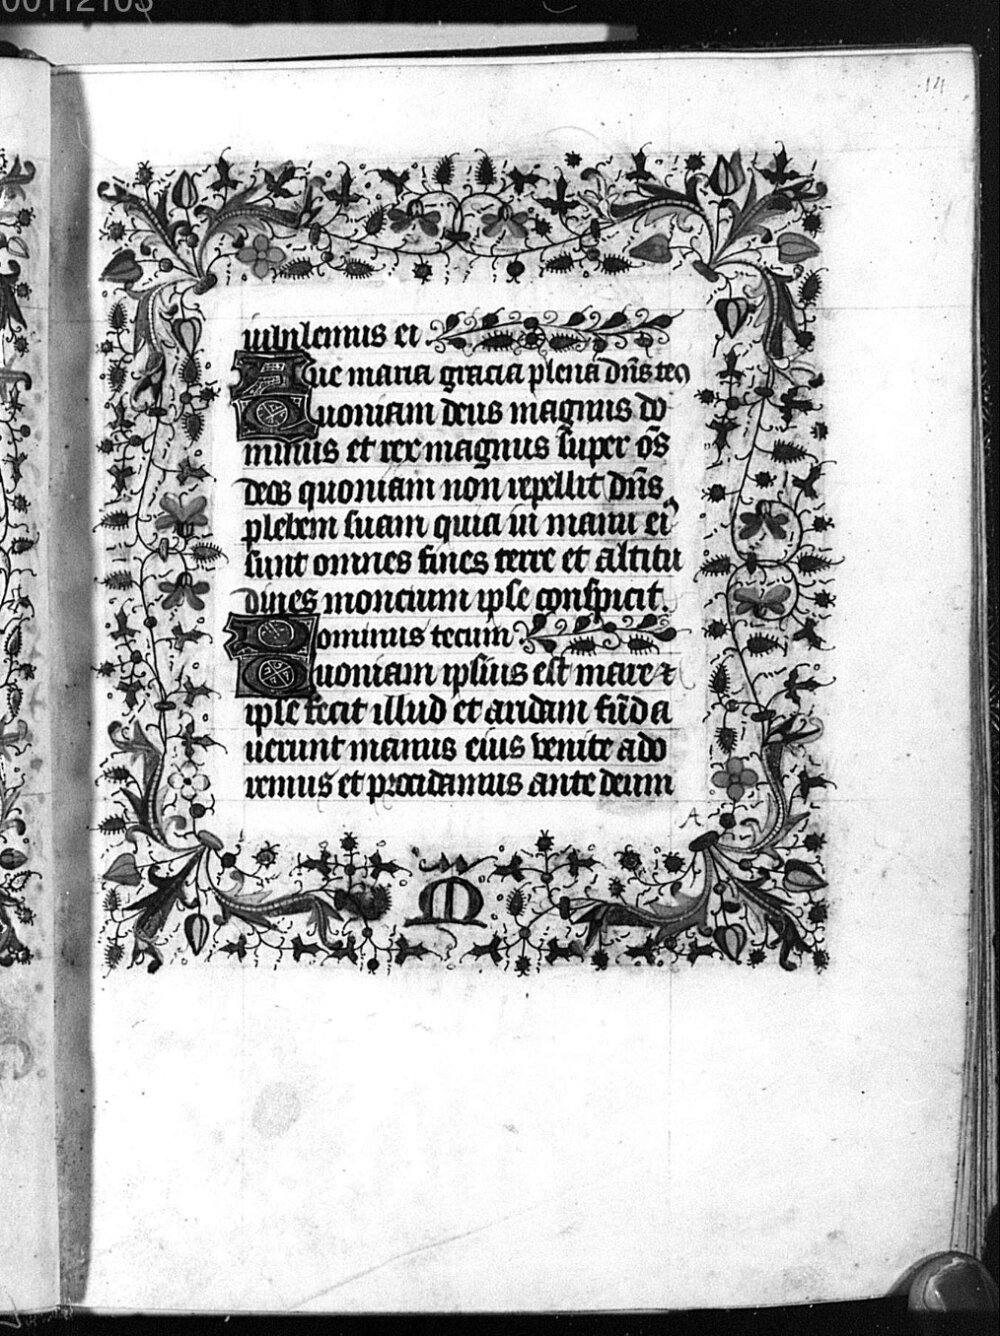 00112103
14
iubilemus ei.
Aue maria gracia plena dn̄s tecū
Quoniam deus magnus do
minus et rex magnus sup̄er o͞s
deos quoniam non repellit dn̄s
plebem suam quia in manu ei⁹
sunt omnes fines terre et altitu
dines moncium ipse conspicit.
Dominus tecum.
Quoniam ipsius est mare ⁊
ipse fecit illud et aridam fūda
uerunt manus eius venite ado
remus et procidamus ante deum
A
M